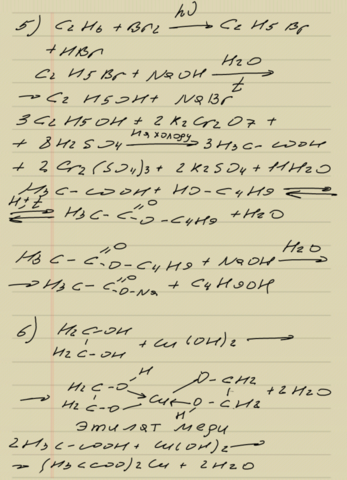 5) C2H6 + Br2 —hν→ C2H5Br
+ HBr
C2H5Br + NaOH —H2O, t→
→ C2H5OH + NaBr
3C2H5OH + 2K2Cr2O7 +
+ 8H2SO4 —на холоду→ 3H3C-COOH
+ 2Cr2(SO4)3 + 2K2SO4 + 11H2O
H3C-COOH + HO-C4H9 ⇌
H+, t ⇌ H3C-C(=O)O-C4H9 + H2O
H3C-C(=O)O-C4H9 + NaOH —H2O→
→ H3C-C(=O)O-Na + C4H9OH
6) H2C-OH
H2C-OH + Cu(OH)2 →
H
→ H2C-O O-CH2
Cu + 2H2O
H2C-O O-CH2
H
этилат меди
2H3C-COOH + Cu(OH)2 →
→ (H3CCOO)2Cu + 2H2O